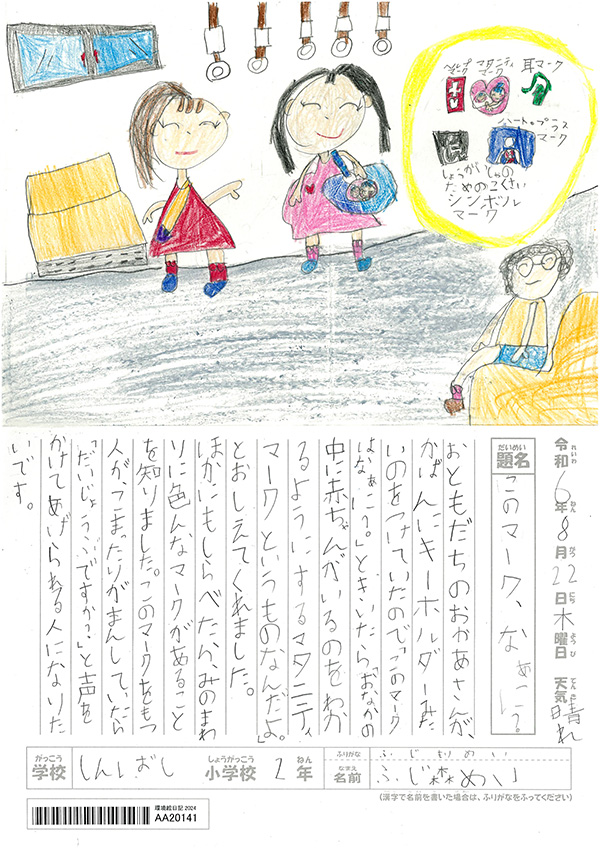 ヘルプマーク
マタニティマーク
耳マーク
ハート・プラスマーク
しょうがいしゃの
ための こくさい
シンボル
マーク
令和6年8月22日木曜日 天気晴れ
れいわ ねん がつ にち ようび てんき
だいめい
題名 このマーク、なぁに?
おともだちのおかあさんが、
かばんにキーホルダーみた
いのをつけていたので「このマーク
はなぁに?」ときいたら「おなかの
中に赤ちゃんがいるのをわか
るようにするマタニティ
マークというものなんだよ。」
とおしえてくれました。
ほかにもしらべたら、みのまわ
りに色んなマークがあること
を知りました。このマークをもつ
人がこまったりがまんしていたら
「だいじょうぶですか?」と声を
かけてあげられる人になりた
いです。
がっこう しょうがっこう ねん ふりがな ふじもりめい
学校 小学校 2年 なまえ 名前 ふじ森めい
(漢字で名前を書いた場合は、ふりがなをふってください)
環境絵日記 2024
AA20141